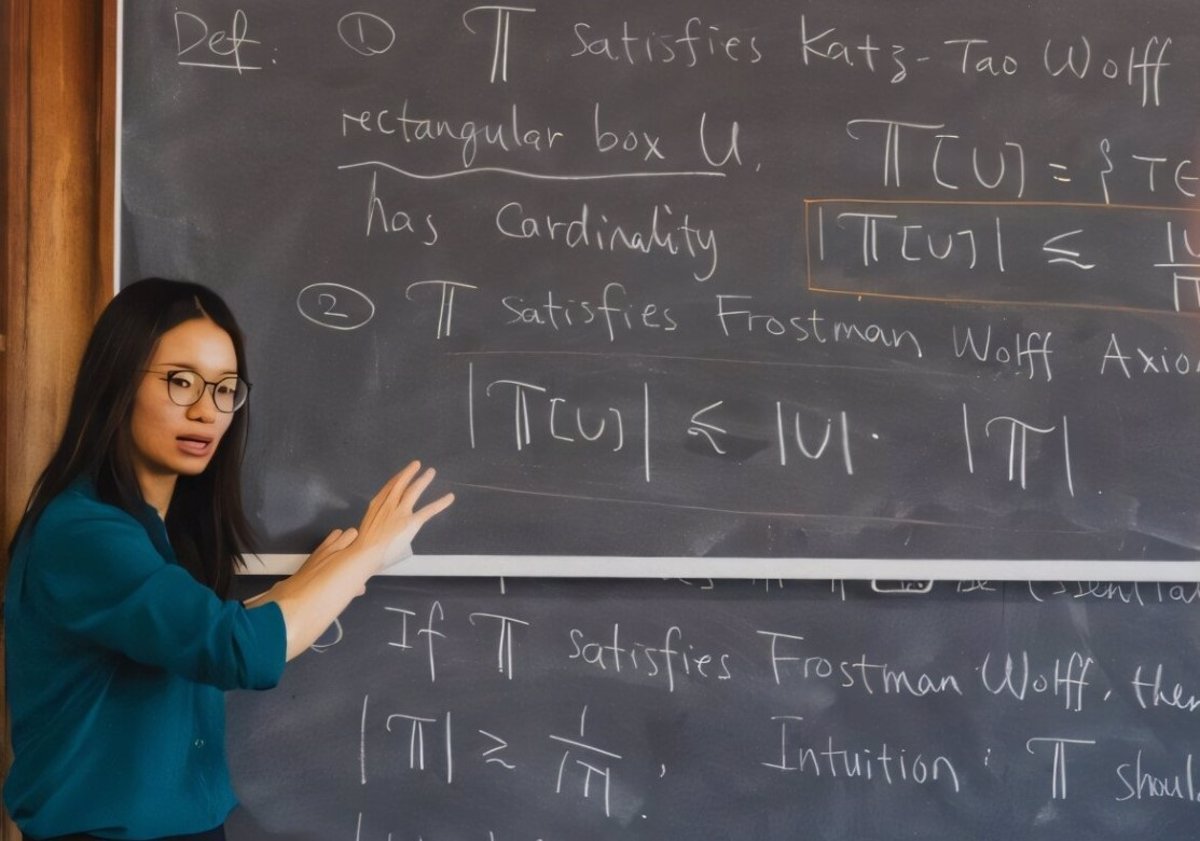 Def: ① 𝕋 satisfies Katz-Tao Wolff
rectangular box U, 𝕋[U] = { T∈
has Cardinality |𝕋[U]| ≲ |U
② 𝕋 satisfies Frostman Wolff Axio
|𝕋[U]| ≲ |U|· |𝕋|.
If 𝕋 satisfies Frostman Wolff, then
|𝕋| ≳ 1/|T|, Intuition: 𝕋 shoul